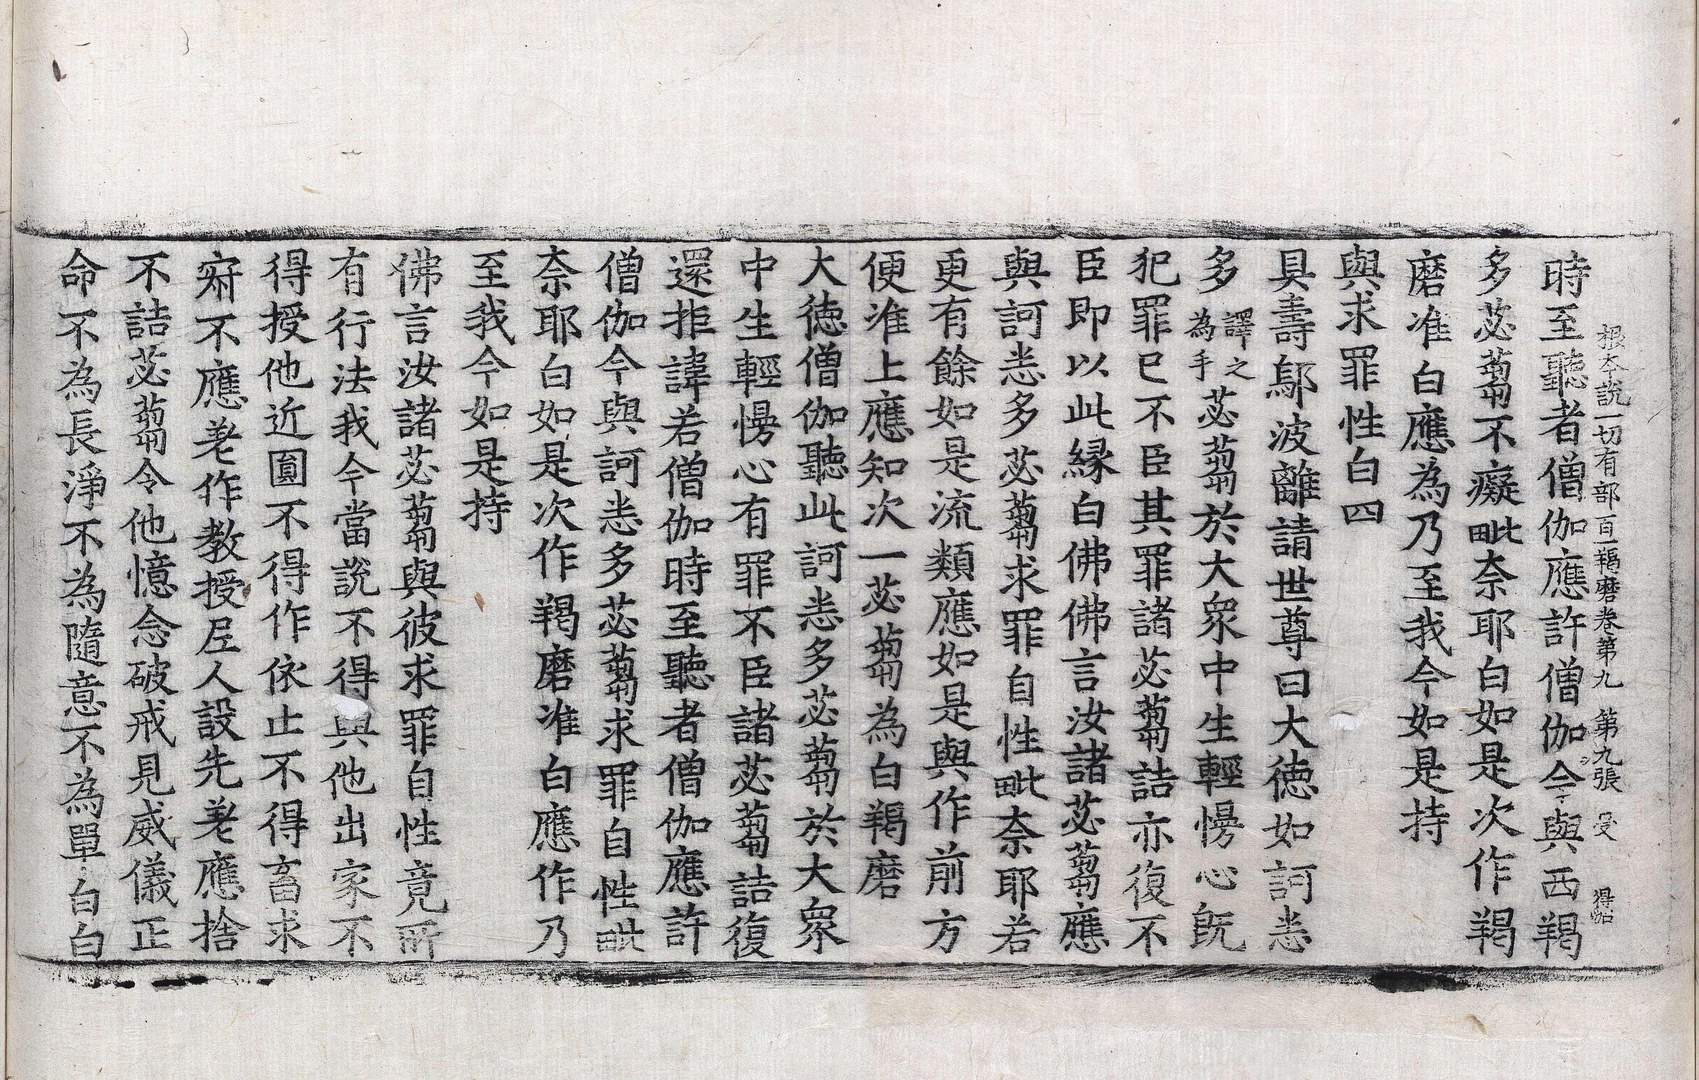 根本說一切有部百一羯磨卷第九 第九張 受 得
時至聽者僧伽應許僧伽今與西羯
多苾蒭不癡毗奈耶白如是次作羯
磨准白應為乃至我今如是持
與求罪性白四
具壽鄔波離請世尊曰大德如訶恚
多譯之為手苾蒭於大衆中生輕慢心旣
犯罪已不臣其罪諸苾蒭詰亦復不
臣即以此緣白佛佛言汝諸苾蒭應
與訶恚多苾蒭求罪自性毗奈耶若
更有餘如是流類應如是與作前方
便准上應知次一苾蒭為白羯磨
大德僧伽聽此訶恚多苾蒭於大衆
中生輕慢心有罪不臣諸苾蒭詰復
還拒諱若僧伽時至聽者僧伽應許
僧伽今與訶恚多苾蒭求罪自性毗
奈耶白如是次作羯磨准白應作乃
至我今如是持
佛言汝諸苾蒭與彼求罪自性竟所
有行法我今當說不得與他出家不
得授他近圓不得作依止不得畜求
寂不應差作教授尼人設先差應捨
不詰苾蒭令他憶念破戒見威儀正
命不為長淨不為隨意不為單白白